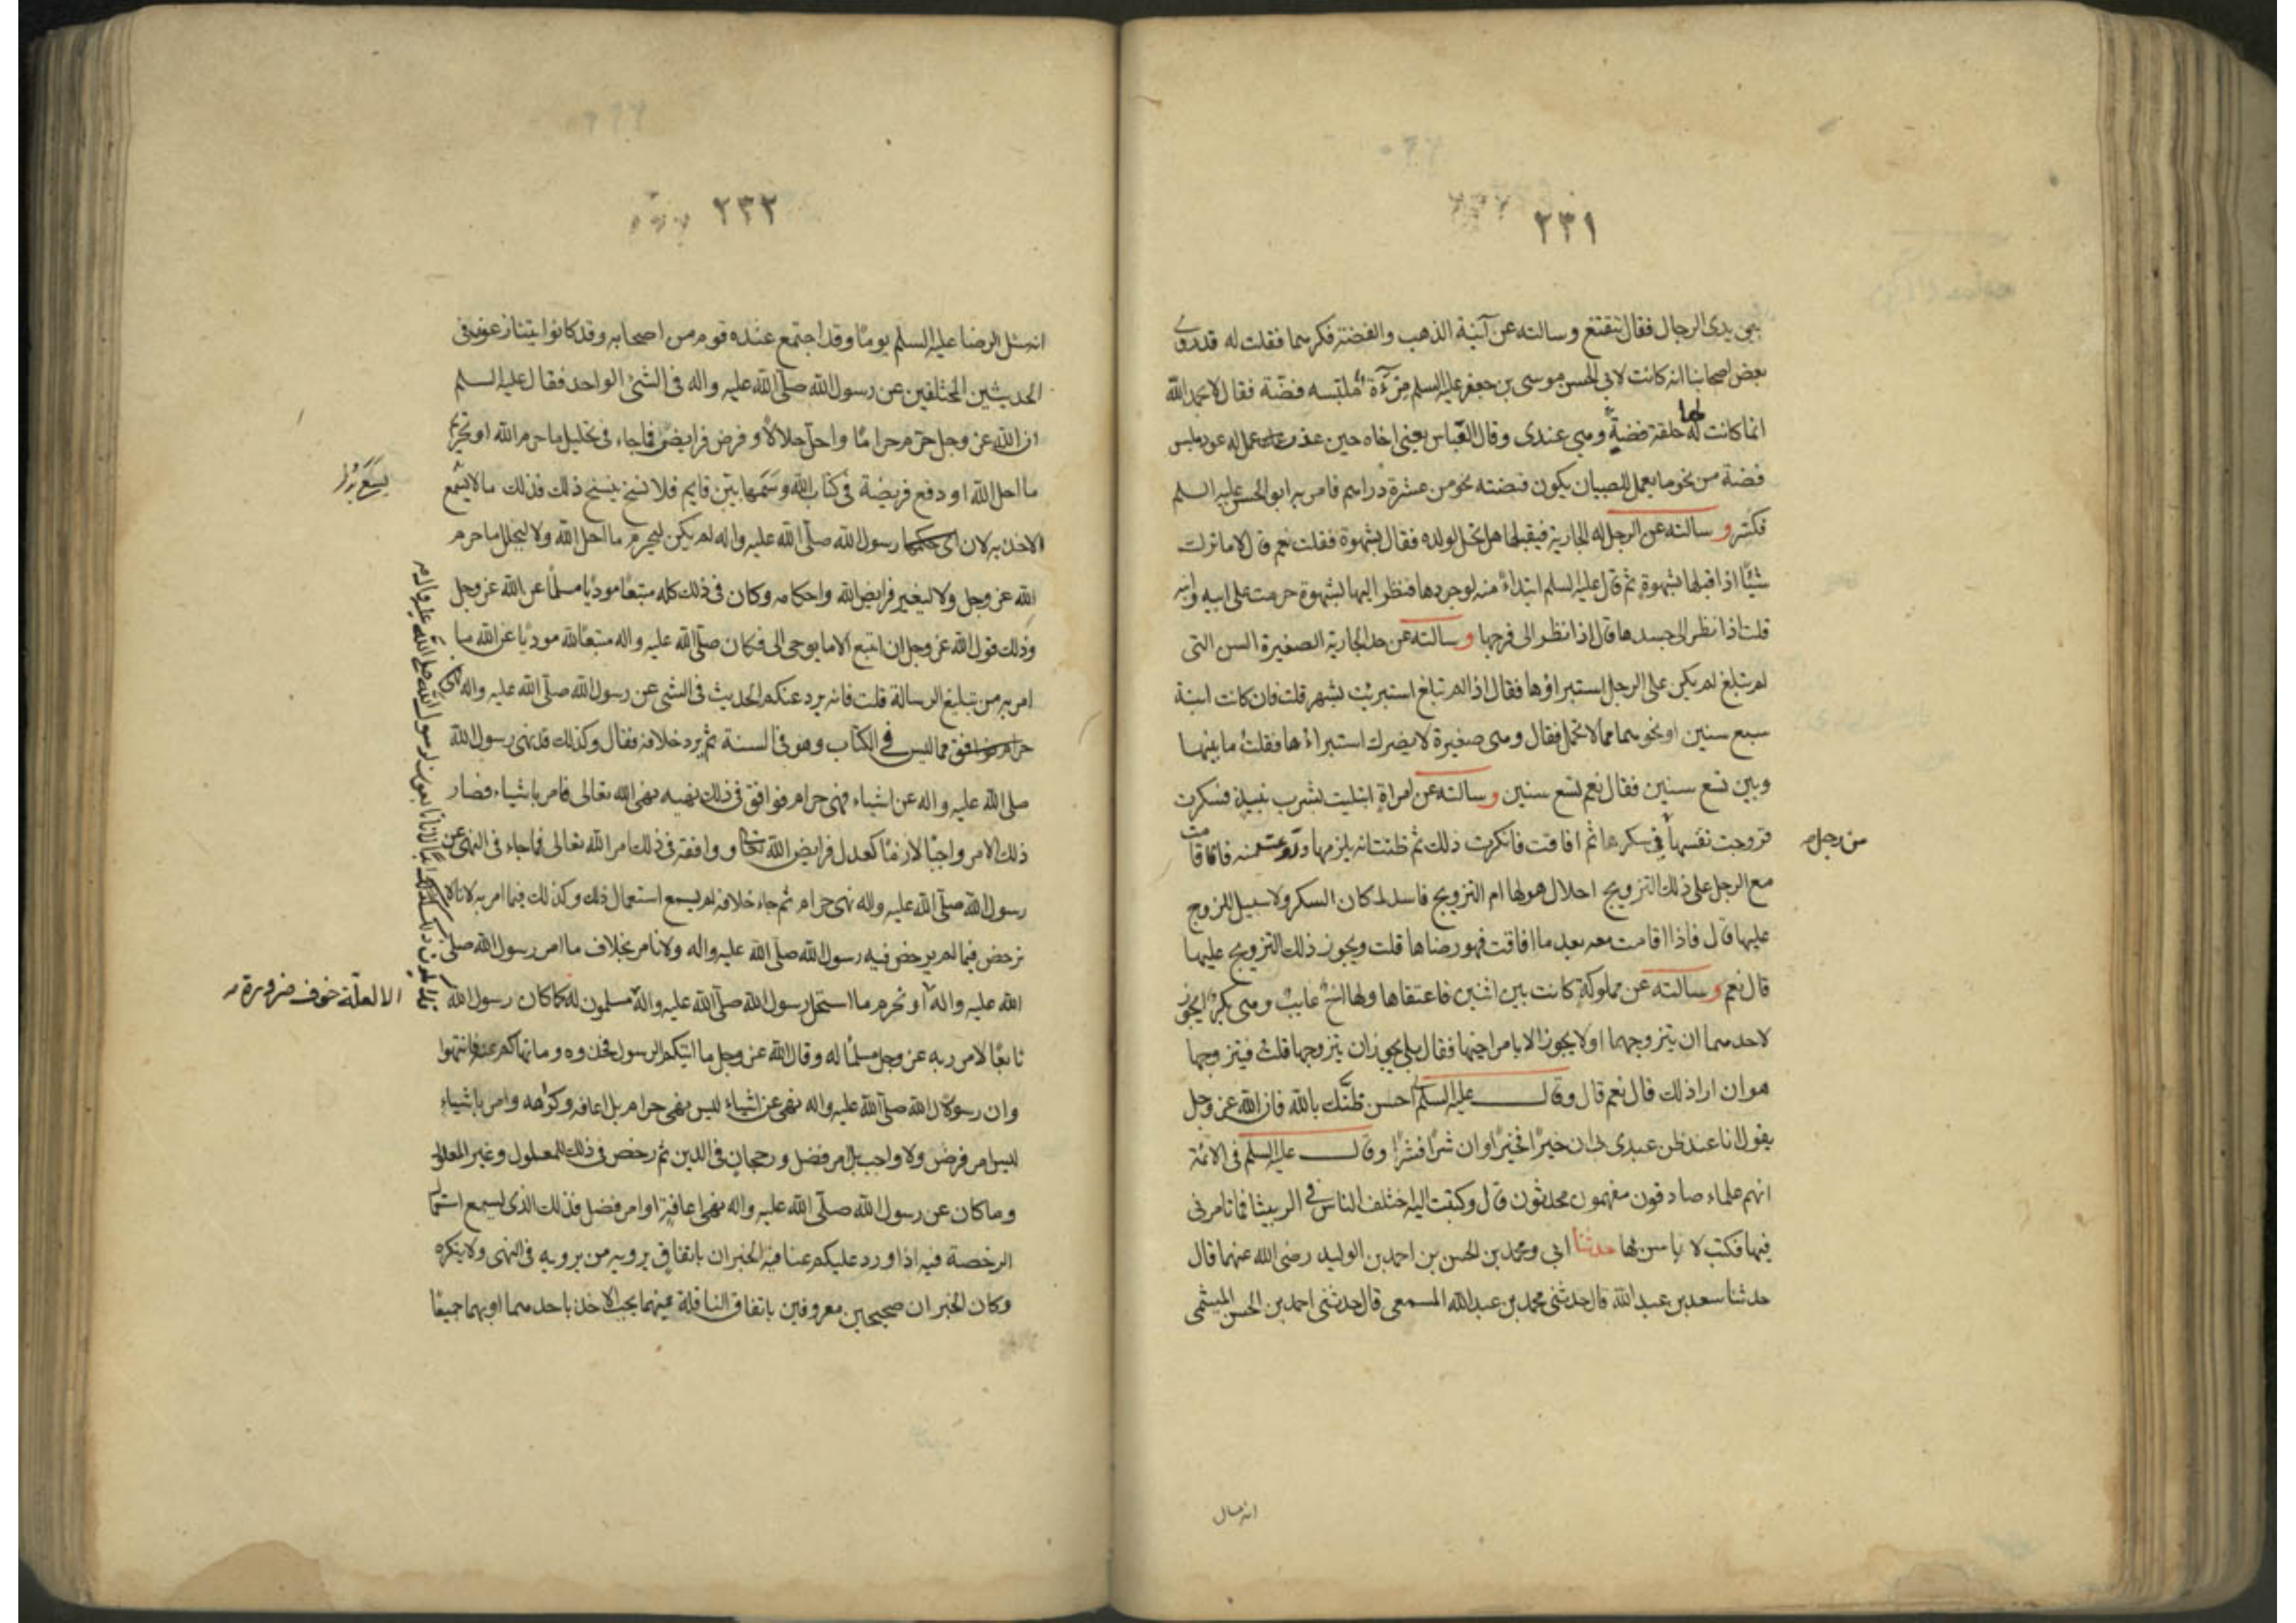 ٢٣١
بين يدي الرجال فقال تتقنع وسالته عن آنية الذهب والفضة فكرههما فقلت له قد روى
بعض اصحابنا انه كانت لابي الحسن موسى بن جعفر عليه السلم مرآة ملبسه فضة فقال لا بحمد الله
انما كانت لها حلقة فضة وهي عندي وقال العباس يعني اخاه حين عذر عمل له عود ملبس
فضة من نحو ما يعمل للصبيان يكون فضته نحو من عشرة دراهم فامر به ابو الحسن عليه السلم
فكسر وسالته عن الرجل له الجارية فيقبلها هل تحل لولده فقال بشهوة فقلت نعم قال لا ما ترك
شيئا اذا قبلها بشهوة ثم قال عليه السلم ابتداء منه لو جردها فنظر اليها بشهوة حرمت على ابيه وابنه
قلت اذا نظر الى جسدها قال اذا نظر الى فرجها وسالته عن حد الجارية الصغيرة السن التي
لم تبلغ لم يكن على الرجل استبراؤها فقال اذا لم تبلغ استبرئت بشهر قلت فان كانت ابنة
سبع سنين او نحوهما مما لا تحمل فقال وهي صغيرة لا يضرك استبراءها فقلت ما بينها
وبين تسع سنين فقال نعم تسع سنين وسالته عن امراة ابتليت بشرب نبيذ فسكرت
فزوجت نفسها في سكرها ثم افاقت فانكرت ذلك ثم ظنت انه يلزمها منه فاقامت
من رجل
مع الرجل على ذلك التزويج احلال هو لها ام التزويج فاسد لمكان السكر ولا سبيل للزوج
عليها قال فاذا اقامت معه بعد ما افاقت فهو رضاها قلت ويجوز ذلك التزويج عليها
قال نعم وسالته عن مملوكة كانت بين اثنين فاعتقاها ولها اخ غايب وهي بكر ايجوز
لاحدهما ان يتزوجها او لا يجوز الا بامر اخيها فقال بلى يجوز ان يتزوجها قلت فيتزوجها
هو ان اراد ذلك قال نعم قال وقال عليه السلم احسن ظنك بالله فان الله عز وجل
يقول انا عند ظن عبدي ان خيرا فخيرا وان شرا فشرا وقال عليه السلم في الائمة
انهم علماء صادقون مفهمون محدثون قال وكتبت اليه اختلف الناس في الربيثا فما تامرني
فيها فكتب لا باس بها حدثنا ابي ومحمد بن الحسن بن احمد بن الوليد رضى الله عنهما قال
حدثنا سعد بن عبد الله قال حدثني محمد بن عبد الله المسمعي قال حدثني احمد بن الحسن الميثمي
انه سال
٢٣٢
انه سئل الرضا عليه السلم يوما وقد اجتمع عنده قوم من اصحابه وقد كانوا يتنازعون في
الحديثين المختلفين عن رسول الله صلى الله عليه واله في الشئ الواحد فقال عليه السلم
ان الله عز وجل حرم حراما واحل حلالا وفرض فرايض فما جاء في تحليل ما حرم الله او تحريم
ما احل الله او دفع فريضة في كتاب الله رسمها بين قايم فلا نسخ ينسخ ذلك فذلك ما لا يسع
الاخذ به لان رسول الله صلى الله عليه واله لم يكن ليحرم ما احل الله ولا ليحلل ما حرم
الله عز وجل ولا ليغير فرايض الله واحكامه وكان في ذلك كله متبعا موديا مسلما عن الله عز وجل
وذلك قول الله عز وجل ان اتبع الا ما يوحى الي فكان صلى الله عليه واله متبعا لله موديا عن الله ما
امر به من تبليغ الرسالة قلت فانه يرد عنكم الحديث في الشئ عن رسول الله صلى الله عليه واله
مما ليس في الكتاب وهو في السنة ثم يرد خلافه فقال وكذلك قد نهى رسول الله
صلى الله عليه واله عن اشياء نهى حرام فوافق في ذلك نهيه نهي الله تعالى فامر باشياء فصار
ذلك الامر واجبا لازما كعدل فرايض الله ووافق في ذلك امر الله تعالى فما جاء في النهي عن
رسول الله صلى الله عليه واله نهى حرام ثم جاء خلافه لم يسمع استعمال ذلك وكذلك فيما امر به لانا لا
نرخص فيما لم يرخص فيه رسول الله صلى الله عليه واله ولا نامر بخلاف ما امر رسول الله صلى
الا لعلة خوف ضرورة
الله عليه واله او نحرم ما استحل رسول الله صلى الله عليه واله مسلمون له كما كان رسول الله
تابعا لامر ربه عز وجل مسلما له وقال الله عز وجل ما اتيكم الرسول فخذوه وما نهاكم عنه فانتهوا
وان رسول الله صلى الله عليه واله نهى عن اشياء ليس نهي حرام بل اعافة وكراهة وامر باشياء
ليس امر فرض ولا واجب بل امر فضل ورجحان في الدين ثم رخص في ذلك للمعلول وغير المعلول
وما كان عن رسول الله صلى الله عليه واله نهى اعافة او امر فضل فذلك الذي يسع استعمال
الرخصة فيه اذا ورد عليكم عنا فيه الخبران باتفاق يرويه من يرويه في النهي ولا ينكره
وكان الخبران صحيحين معروفين باتفاق الناقلة فيهما يجب الاخذ باحدهما او بهما جميعا